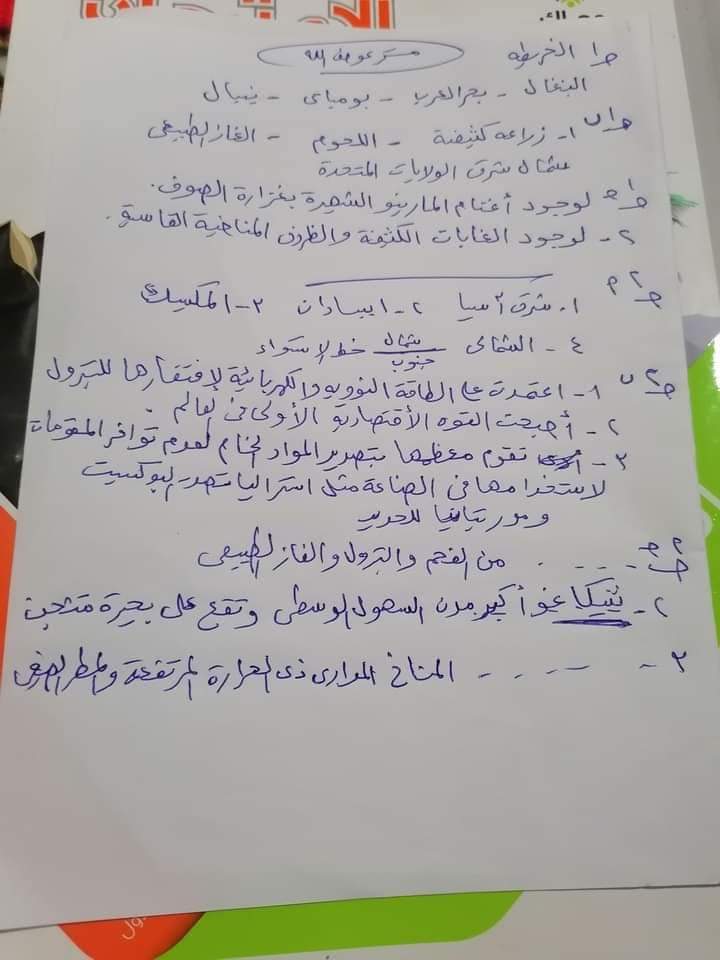 مستر عوض الله
ج١ الخريطه
البنغال - بحر العرب - بومباى - نيبال
ج١ب ١- زراعه كثيفة - اللحوم - الغاز الطبيعى
شمال شرق الولايات المتحدة
ج١ج لوجود أغنام المارينو الشهيرة بغزارة الصوف.
٢- لوجود الغابات الكثيفة والظروف المناخية القاسية.
ج٢ ١. شرق آسيا ٢- ايبادان ٣- المكسيك
٤- الشمالى شمال خط الإستواء
جنوب
ج٢ب ١- اعتمدت على الطاقة النوويه والكهربائية لإفتقارها للبترول
٢- أصبحت القوه الأقتصادية الأولى فى العالم.
٣- تقوم معظمها بتصدير المواد الخام لعدم توافر المقومات
لاستخدامها فى الصناعة مثل استراليا تصدر البوكسيت
وموريتانيا للحديد
ج٢ج .... من الفحم والبترول والغاز الطبيعى
٢- شيكاغو أكبر مدن السهول الوسطى وتقع على بحيرة متشجن
٣- .... المناخ المدارى ذى الحرارة المرتفعة والمطر الصيفى